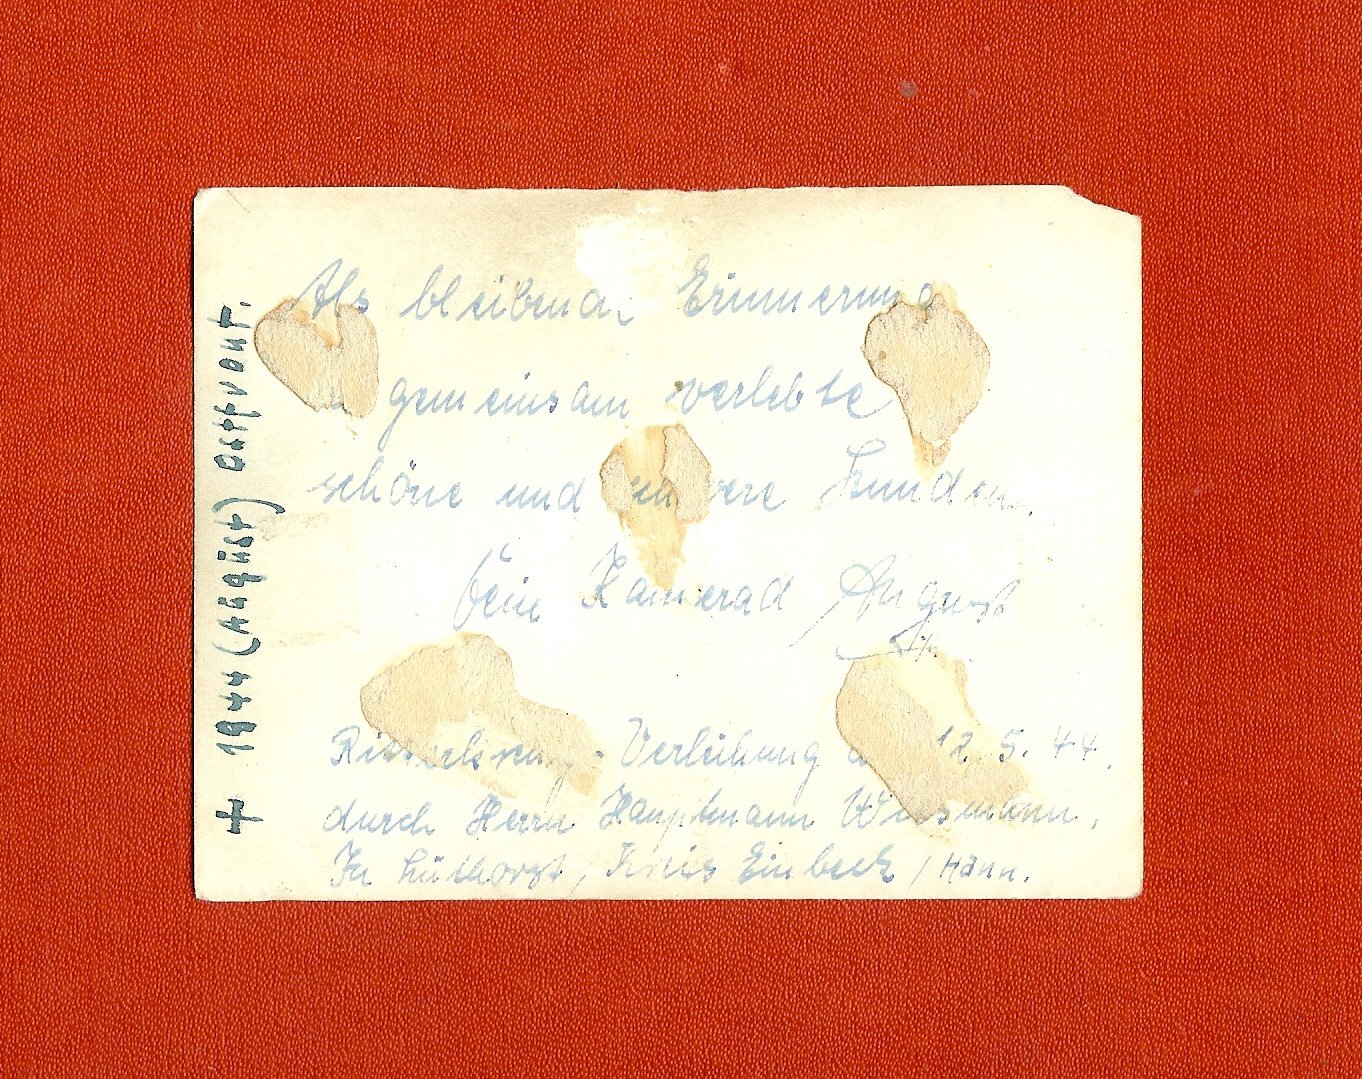 Als bleibende Erinnerung
gemeinsam verlebte
schöne und schwere Stunden.
Dein Kamerad August
Ritterkreuz-Verleihung 12.5.44.
durch Herrn Hauptmann
In Lüthorst, Kreis Einbeck / Hann.
+ 1944 (August) Ostfront.